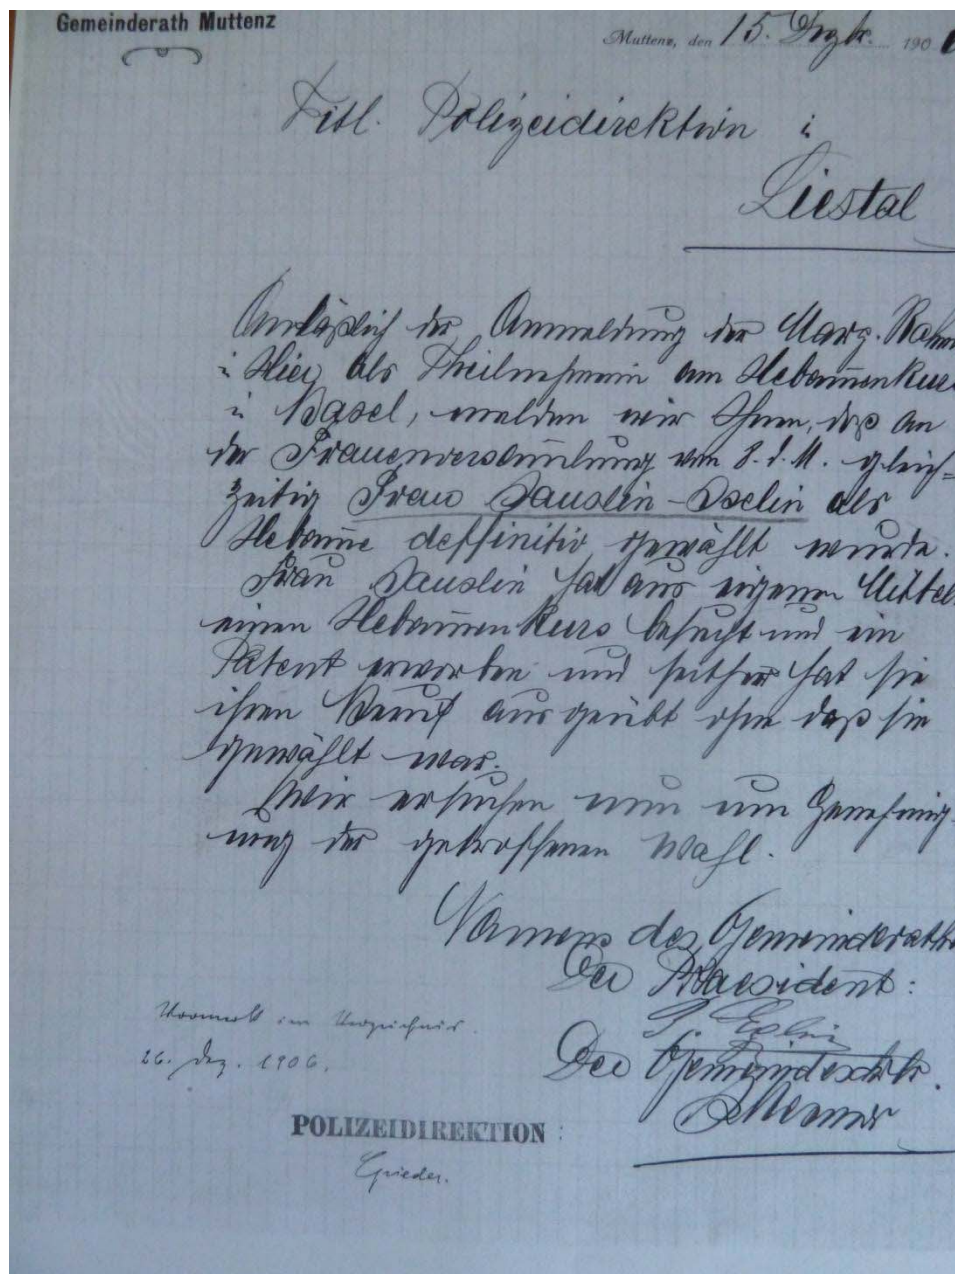 Gemeinderath Muttenz
Muttenz, den 15. Dezbr. 190
Titl. Polizeidirektion i
Liestal
Anläßlich der Anmeldung der Marg.
i Hier als Theilnehmerin am Hebam̄enkurs
in Basel, melden wir Ihnen, daß an
der Frauenversam̄lung vom 8. d. M. gleich=
zeitig Frau Jauslin-Iselin als
Hebam̄e deffinitiv gewählt wurde.
Frau Jauslin hat aus eigenen Mitteln
einen Hebam̄enkurs besucht und ein
Patent erworben und seither hat sie
ihren Beruf ausgeübt ohne daß sie
gewählt war.
Wir ersuchen nun um Genehmig-
ung der getroffenen Wahl.
Namens des Gemeinderathes
Der Praesident:
Der
Vormerk im Verzeichnis.
26. Dez. 1906.
POLIZEIDIREKTION:
Grieder.